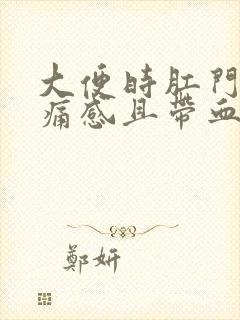 大便时肛門
痛感且帶血
鄭妍